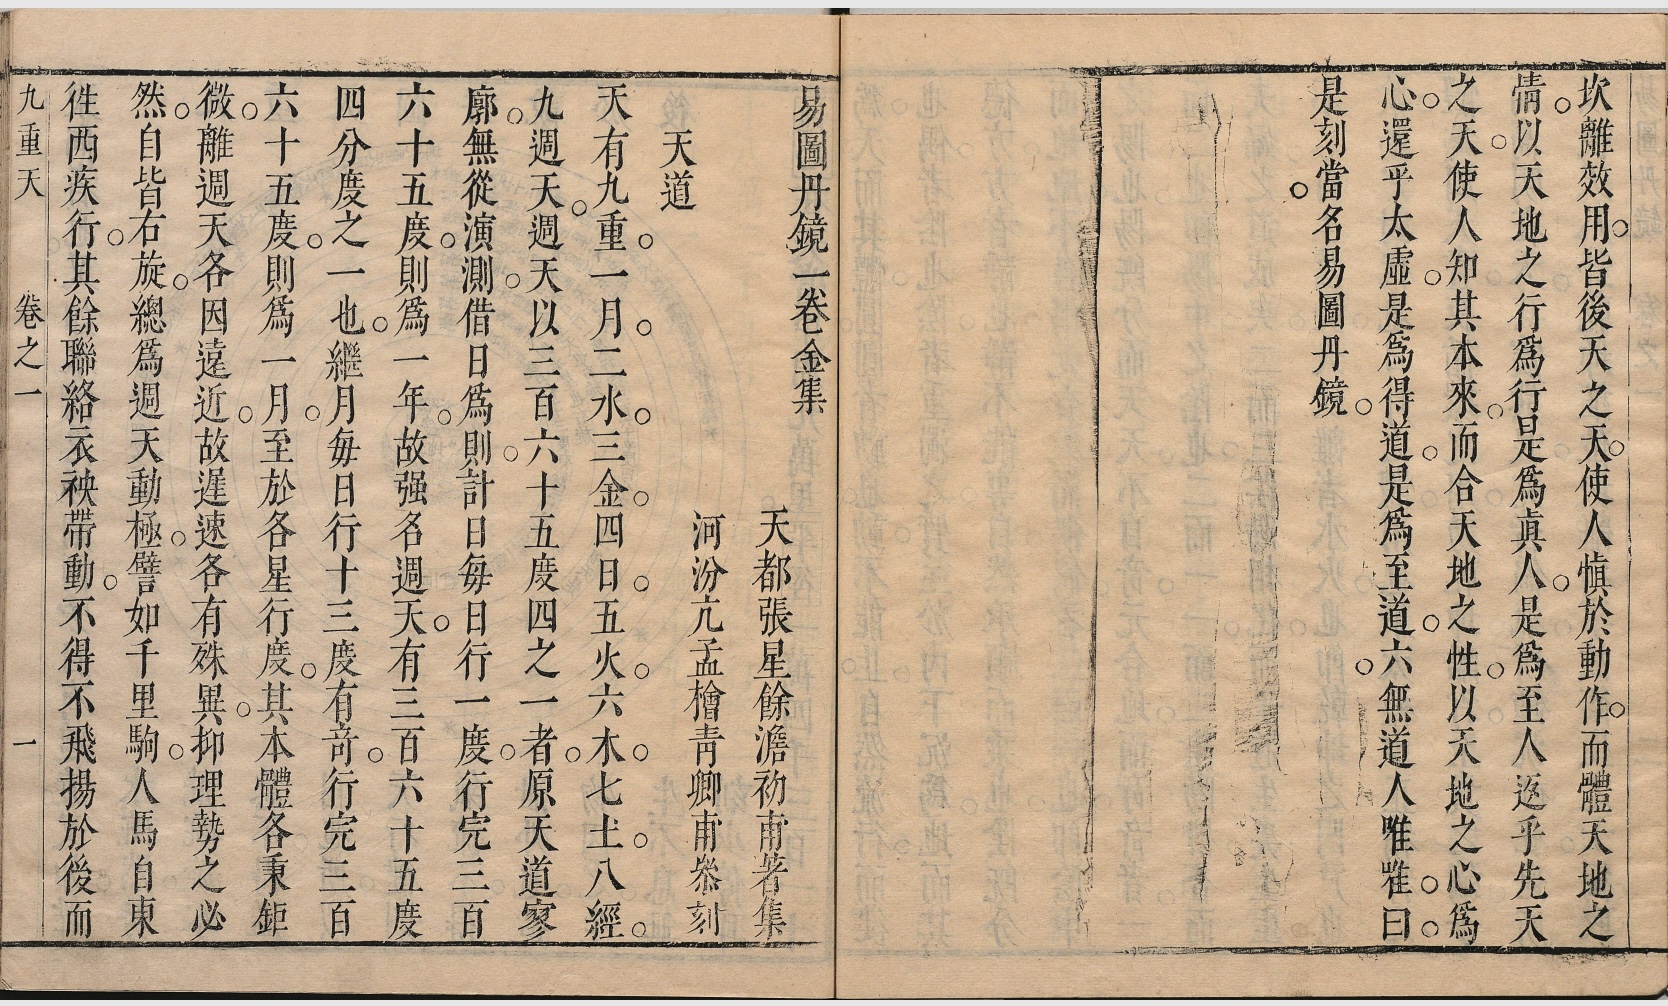 坎離效用皆後天之天使人愼於動作而體天地之
情以天地之行爲行是爲眞人是爲至人返乎先天
之天使人知其本來而合天地之性以天地之心爲
心還乎太虛是爲得道是爲至道六無道人唯唯曰
是刻當名易圖丹鏡
易圖丹鏡一卷金集
天都張星餘澹初甫著集
河汾亢孟檜青卿甫叅刻
天道
天有九重一月二水三金四日五火六木七土八經
九週天週天以三百六十五度四之一者原天道寥
廓無從演測借日爲則計日每日行一度行完三百
六十五度則爲一年故强名週天有三百六十五度
四分度之一也繼月每日行十三度有竒行完三百
六十五度則爲一月至於各星行度其本體各秉鉅
微離週天各因遠近故遲速各有殊異抑理勢之必
然自皆右旋總爲週天動極譬如千里駒人馬自東
徃西疾行其餘聯絡衣袂帶動不得不飛揚於後而
九重天 卷之一 一